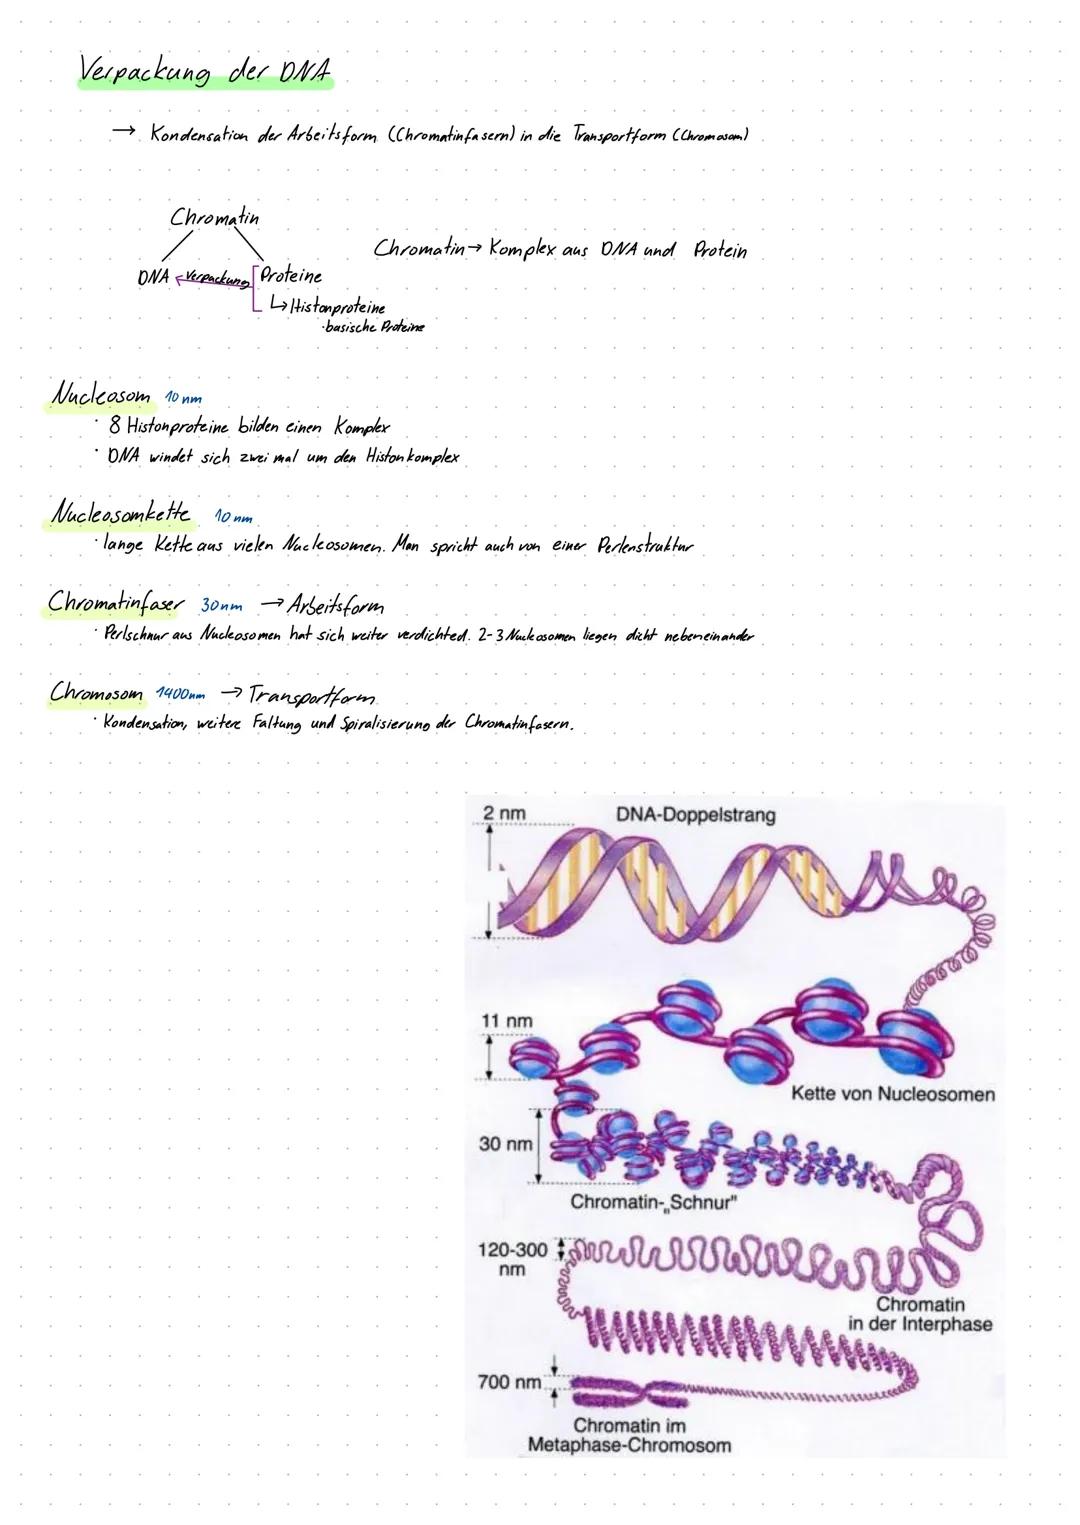 Verpackung der DNA
→ Kondensation der Arbeitsform (Chromatinfasern) in die Transportform (Chromosom)
Chromatin
Chromatin → Komplex aus DNA und Protein
DNA ← Verpackung [ Proteine
↳ Histonproteine
· basische Proteine
Nucleosom 10 nm
· 8 Histonproteine bilden einen Komplex
· DNA windet sich zwei mal um den Histonkomplex
Nucleosomkette 10 nm
· lange Kette aus vielen Nucleosomen. Man spricht auch von einer Perlenstruktur
Chromatinfaser 30nm → Arbeitsform
· Perlschnur aus Nucleosomen hat sich weiter verdichted. 2-3 Nucleosomen liegen dicht nebeneinander
Chromosom 1400nm → Transportform
· Kondensation, weitere Faltung und Spiralisierung der Chromatinfasern.
2 nm
DNA-Doppelstrang
11 nm
Kette von Nucleosomen
30 nm
Chromatin-„Schnur"
120-300
nm
Chromatin
in der Interphase
700 nm
Chromatin im
Metaphase-Chromosom